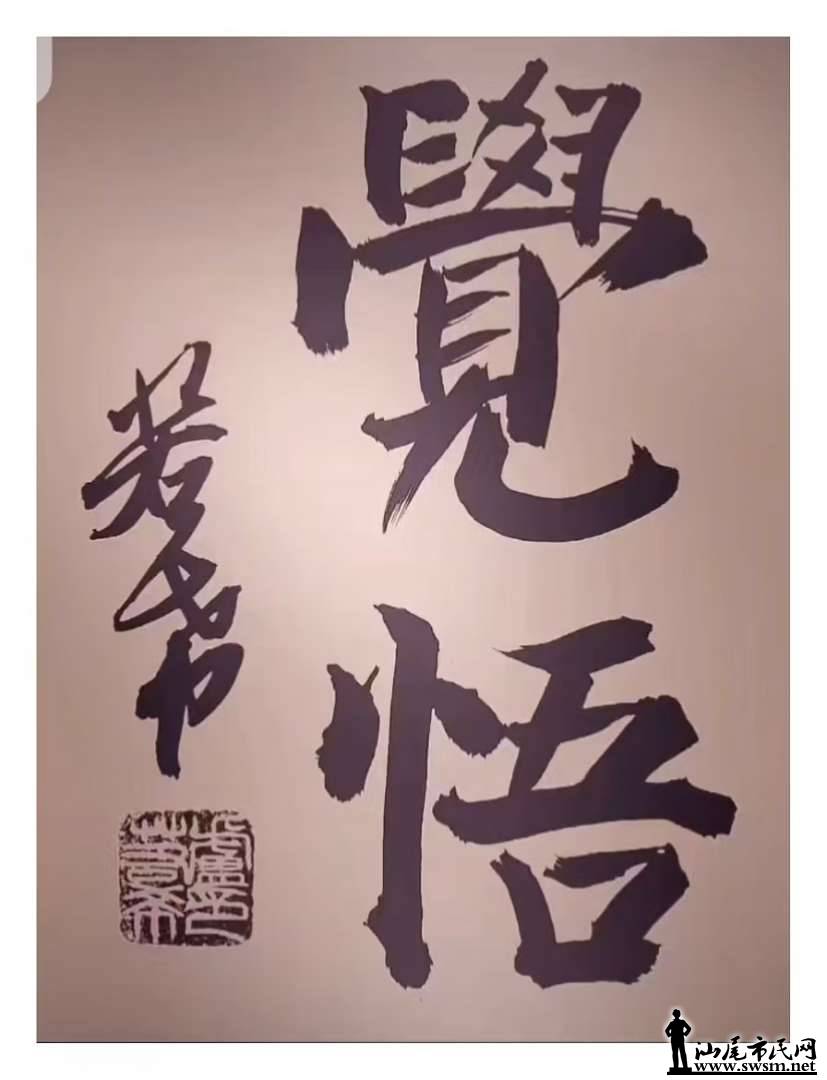 覺悟
若希
汕尾市民网
www.swsm.net